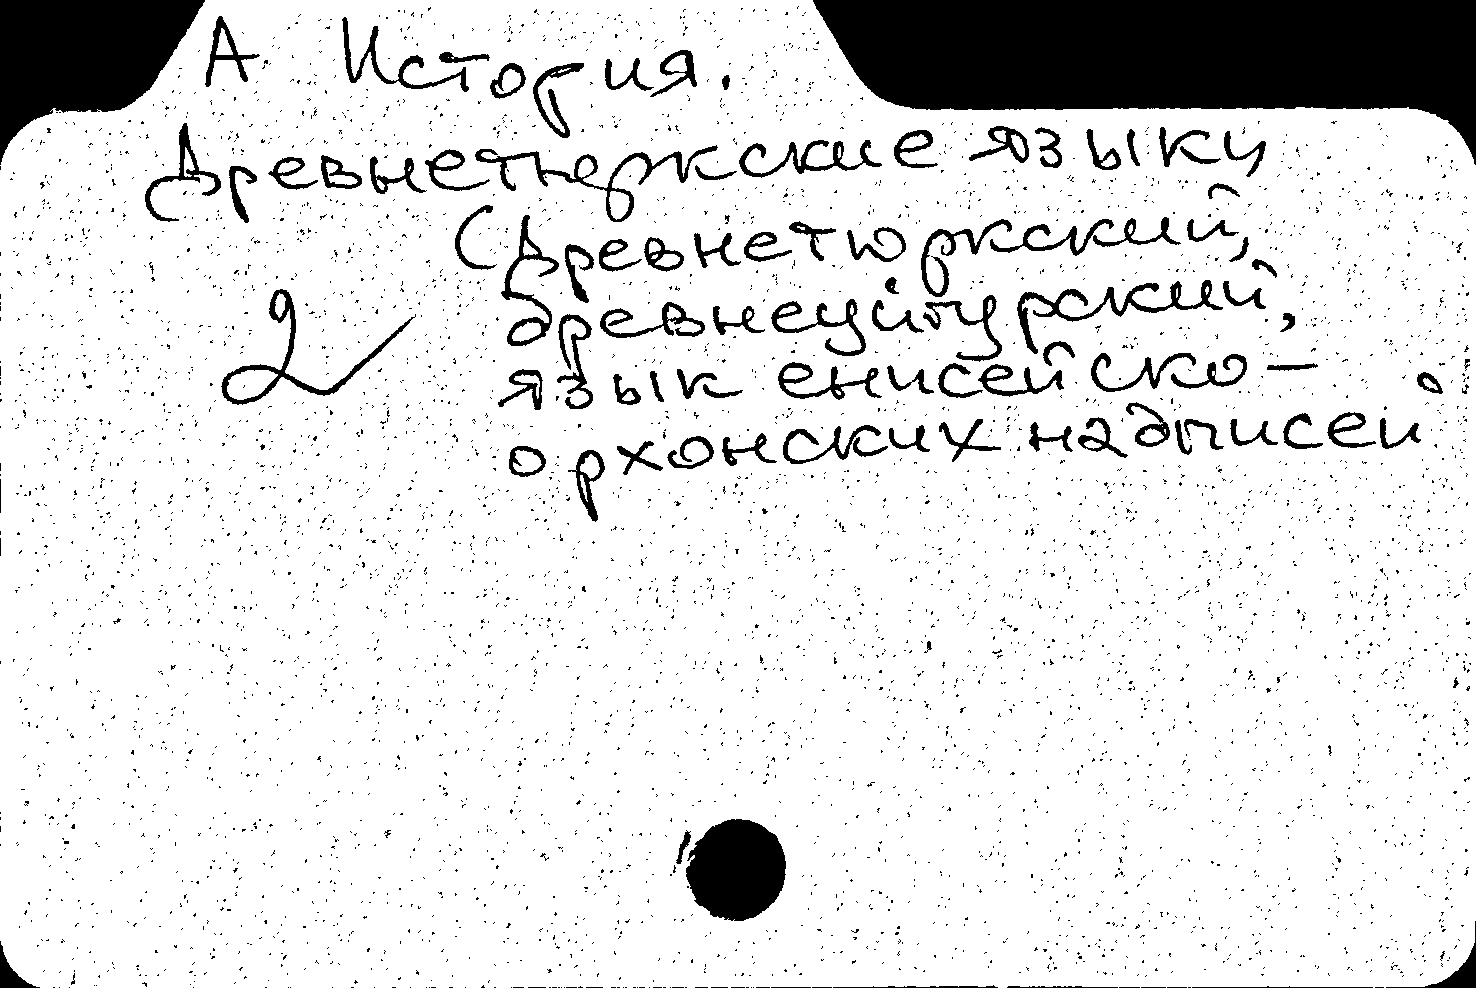 А История.
Древнетюркские языки
(Древнетюркский,
древнеуйгурский,
2 язык енисейско-
орхонских надписей